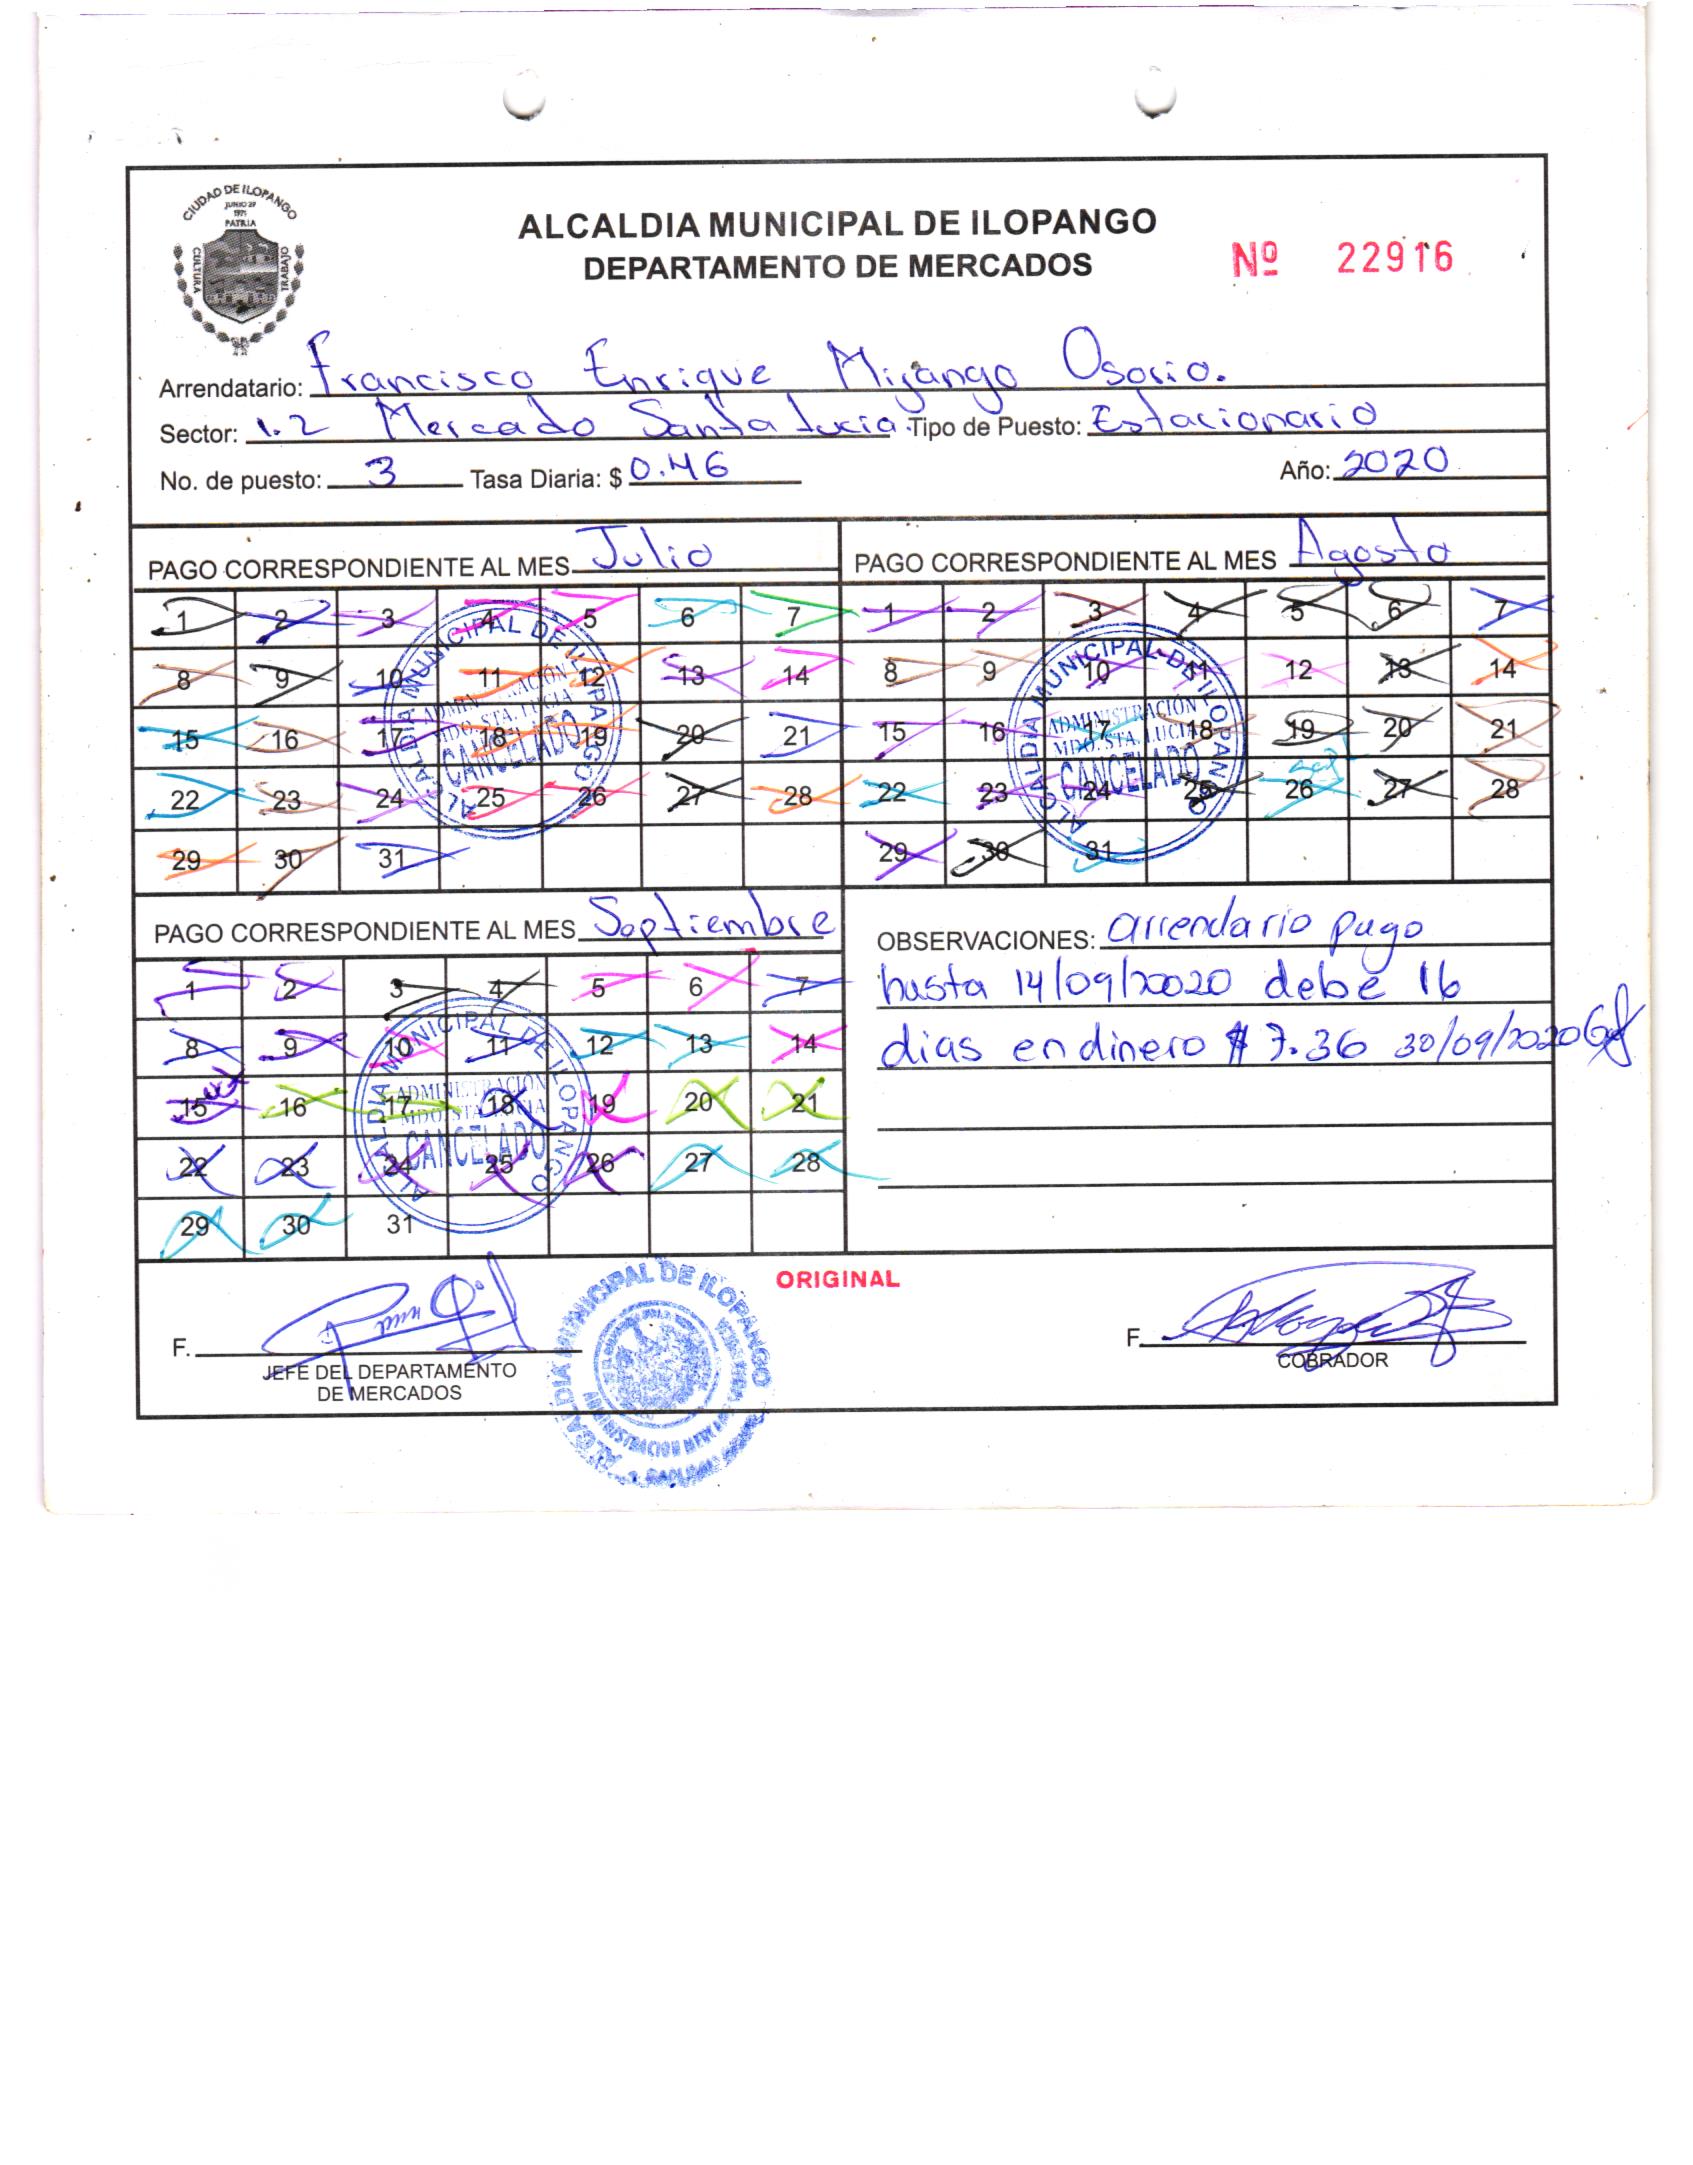 CIUDAD DE ILOPANGO
JUNIO 29
1971
PATRIA
CULTURA
TRABAJO
ALCALDIA MUNICIPAL DE ILOPANGO
DEPARTAMENTO DE MERCADOS
Nº 22916
Arrendatario: Francisco Enrique Mijango Osorio.
Sector: 1.2 Mercado Santa Lucia. Tipo de Puesto: Estacionario
No. de puesto: 3 Tasa Diaria: $ 0.46 Año: 2020
PAGO CORRESPONDIENTE AL MES Julio
1 2 3 4 5 6 7
8 9 10 11 12 13 14
15 16 17 18 19 20 21
22 23 24 25 26 27 28
29 30 31
ALCALDIA MUNICIPAL DE ILOPANGO
ADMINISTRACIÓN
MDO. STA. LUCIA
CANCELADO
PAGO CORRESPONDIENTE AL MES Agosto
1 2 3 4 5 6 7
8 9 10 11 12 13 14
15 16 17 18 19 20 21
22 23 24 25 26 27 28
29 30 31
ALCALDIA MUNICIPAL DE ILOPANGO
ADMINISTRACIÓN
MDO. STA. LUCIA
CANCELADO
PAGO CORRESPONDIENTE AL MES Septiembre
1 2 3 4 5 6 7
8 9 10 11 12 13 14
15 16 17 18 19 20 21
22 23 24 25 26 27 28
29 30 31
ALCALDIA MUNICIPAL DE ILOPANGO
ADMINISTRACIÓN
MDO. STA. LUCIA
CANCELADO
OBSERVACIONES: arrendario pago
hasta 14/09/2020 debe 16
dias en dinero $ 7.36 30/09/2020
ORIGINAL
F.
JEFE DEL DEPARTAMENTO
DE MERCADOS
ALCALDIA MUNICIPAL DE ILOPANGO
F.
COBRADOR